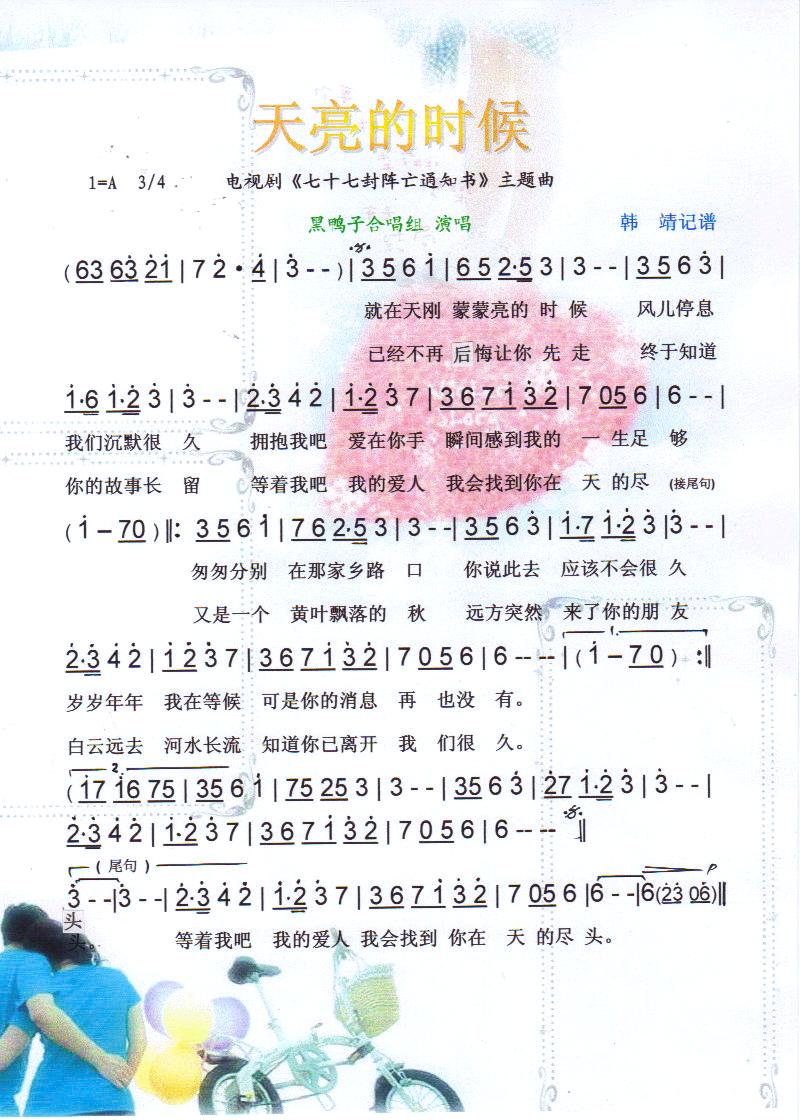 天亮的时候
1=A 3/4 电视剧《七十七封阵亡通知书》主题曲
黑鸭子合唱组 演唱 韩 靖记谱
( 63 63 21 | 7 2 · 4 | 3 - - ) | 3 5 6 1 | 6 5 2·5 3 | 3 - - | 3 5 6 3 |
就在天刚 蒙蒙亮的 时 候 风儿停息
已经不再 后悔让你 先 走 终于知道
1·6 1·2 3 | 3 - - | 2·3 4 2 | 1·2 3 7 | 3 6 7 1 3 2 | 7 05 6 | 6 - - |
我们沉默很 久 拥抱我吧 爱在你手 瞬间感到我的 一 生足 够
你的故事长 留 等着我吧 我的爱人 我会找到你在 天 的尽 (接尾句)
( 1 – 70 ) ‖: 3 5 6 1 | 7 6 2·5 3 | 3 - -| 3 5 6 3 | 1·7 1·2 3 |3 - - |
匆匆分别 在那家乡路 口 你说此去 应该不会很 久
又是一个 黄叶飘落的 秋 远方突然 来了你的朋 友
1.
2·3 4 2 | 1 2 3 7 | 3 6 7 1 3 2 | 7 0 5 6 | 6 -- -- | ( 1 – 7 0 ) :‖
岁岁年年 我在等候 可是你的消息 再 也没 有。
白云远去 河水长流 知道你已离开 我 们很 久。
2.
( 17 16 75 | 35 6 1 | 75 25 3 | 3 - - | 35 6 3 | 27 1·2 3 | 3 - - |
2·3 4 2 | 1·2 3 7 | 3 6 7 1 3 2 | 7 0 5 6 | 6 -- -- ‖
( 尾句 ) P
3 - -|3 - -| 2·3 4 2 | 1·2 3 7 | 3 6 7 1 3 2 | 7 05 6 |6 - -|6(23 06)‖
头
头。 等着我吧 我的爱人 我会找到 你在 天 的尽 头。